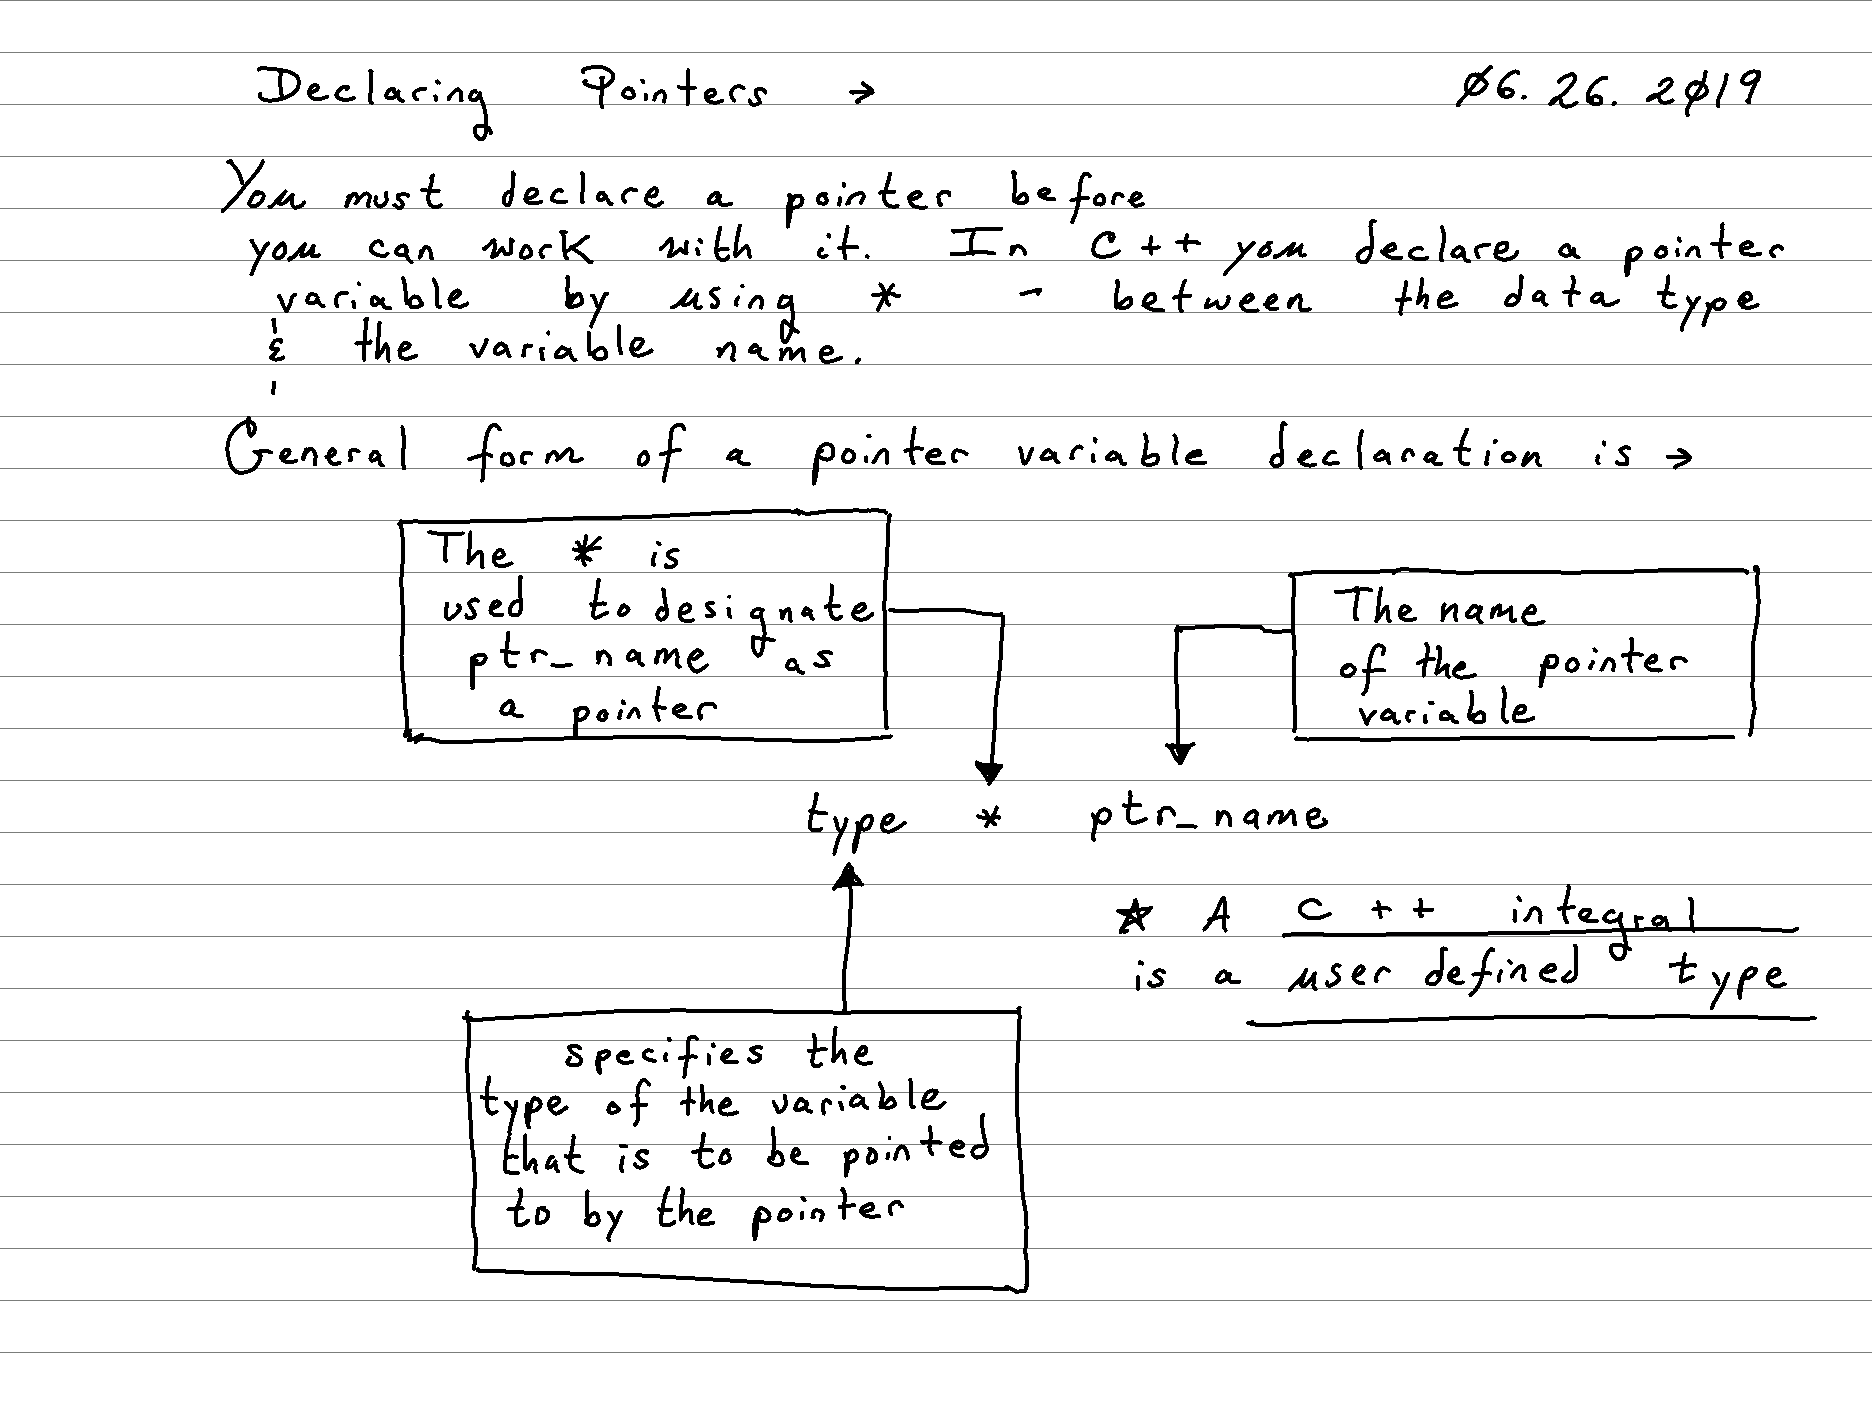 Declaring Pointers → 06.26.2019
You must declare a pointer before
you can work with it. In C++ you declare a pointer
variable by using * - between the data type
& the variable name.
General form of a pointer variable declaration is →
The * is
used to designate
ptr_name as
a pointer
The name
of the pointer
variable
type * ptr_name
★ A C++ integral
is a user defined type
specifies the
type of the variable
that is to be pointed
to by the pointer